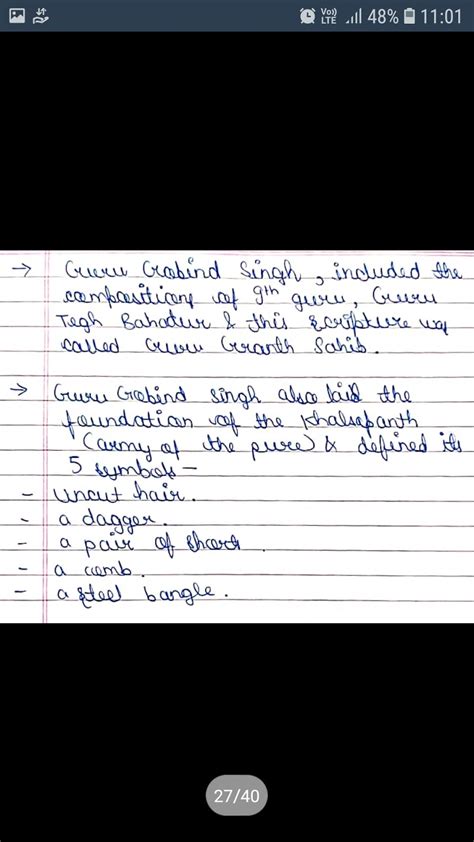 Vo))
LTE 48% 11:01
→ Guru Gobind Singh, included the
compositions of 9th guru, Guru
Tegh Bahadur & this scripture was
called Guru Granth Sahib.
→ Guru Gobind Singh also laid the
foundation of the Khalsapanth
(army of the pure) & defined its
5 symbols –
- Uncut hair.
- a dagger.
- a pair of shorts.
- a comb.
- a steel bangle.
27/40